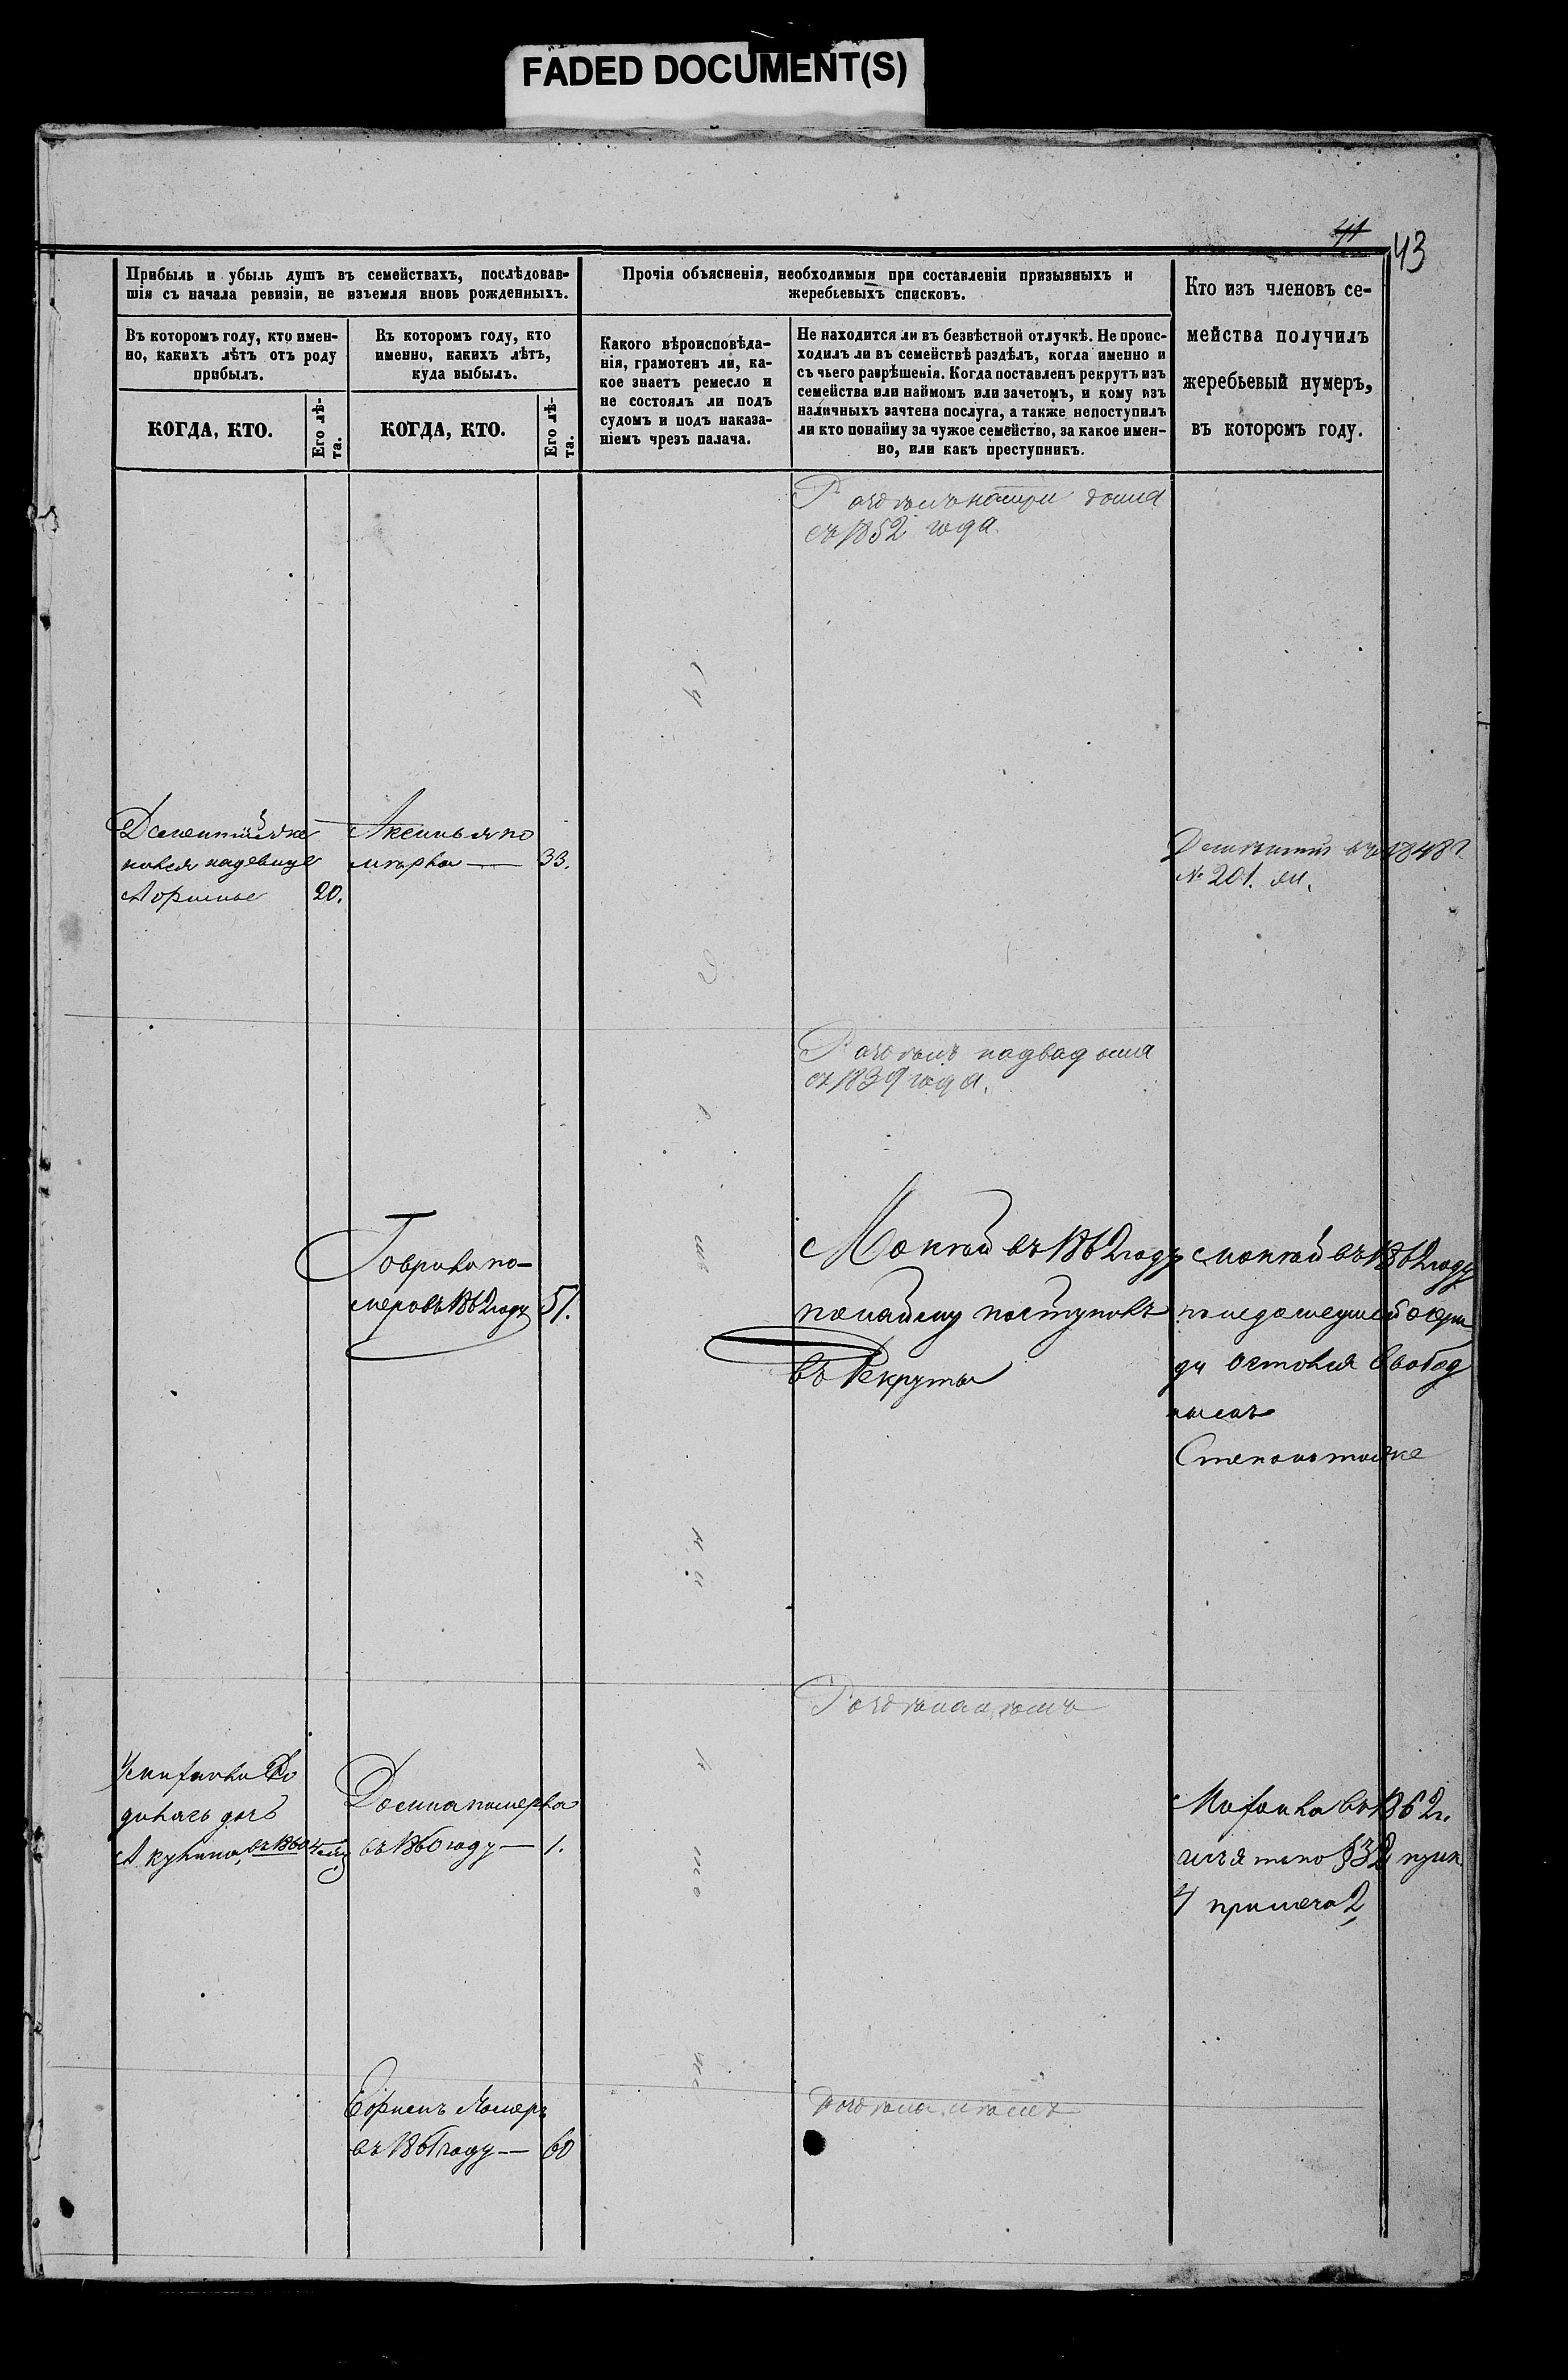 FADED DOCUMENT(S)
41
43
Прибыль и убыль душъ въ семействахъ, послѣдовав-
шія съ начала ревизіи, не изъемля вновь рожденныхъ.
Прочія объясненія, необходимыя при составленіи призывныхъ и
жеребьевыхъ списковъ.
Кто изъ членовъ се-
мейства получилъ
жеребьевый нумеръ,
въ которомъ году.
Въ которомъ году, кто имен-
но, какихъ лѣтъ отъ роду
прибылъ.
Въ которомъ году, кто
именно, какихъ лѣтъ,
куда выбылъ.
Какого вѣроисповѣда-
нія, грамотенъ ли, ка-
кое знаетъ ремесло и
не состоялъ ли подъ
судомъ и подъ наказа-
ніемъ чрезъ палача.
Не находится ли въ безвѣстной отлучкѣ. Не проис-
ходилъ ли въ семействѣ раздѣлъ, когда именно и
съ чьего разрѣшенія. Когда поставленъ рекрутъ изъ
семейства или наймомъ или зачетомъ, и кому изъ
наличныхъ зачтена послуга, а также непоступилъ
ли кто понайму за чужое семейство, за какое имен-
но, или какъ преступникъ.
КОГДА, КТО.
Его лѣ-
та.
КОГДА, КТО.
Его лѣ-
та.
Раздѣлъ натри дома
съ 1852 года.
Дементій же
нился надевице
20.
Аксинья по
мѣрла — 33.
Дементій въ 1848 г.
№ 201.
Раздѣлъ надва дома
съ 1839 года.
Гаврила по-
меръ въ 1862 году 51.
Мокѣй въ 1862 году
понайму поступилъ
въ Рекруты
Мокѣй въ 1862 году
остался свобод
нымъ
Степанъ тоже
Раздѣла нѣтъ
дочь
Акулина, въ 1860 году
Домна померла
въ 1860 году — 1.
въ 1862 г.
изъят по § 32 пунк.
4 примеча 2
Ефимъ Померъ
въ 1861 году — 60
Раздѣла нѣтъ